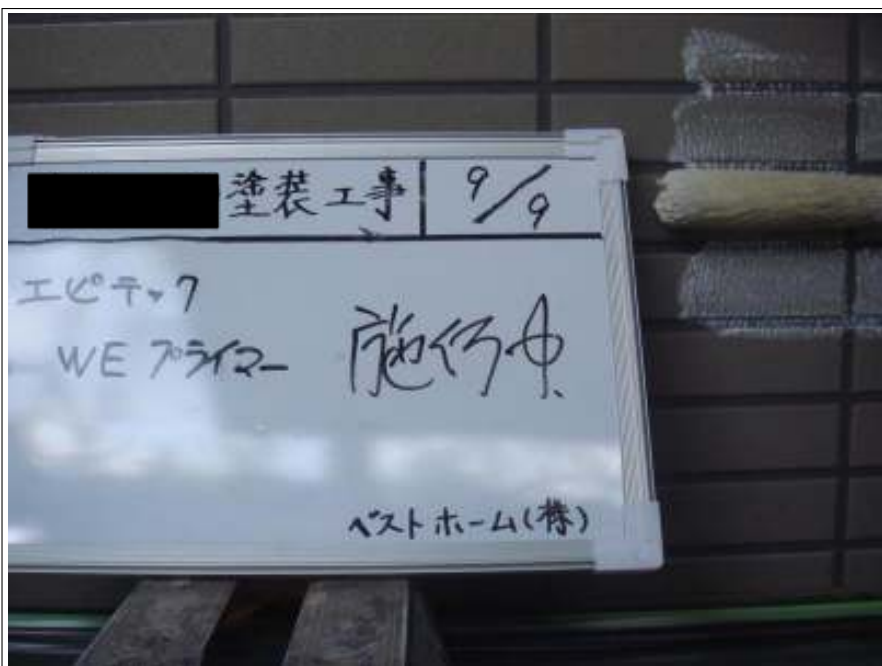 塗装工事 9/9
エピテック
WEプライマー 施行中
ベストホーム(株)